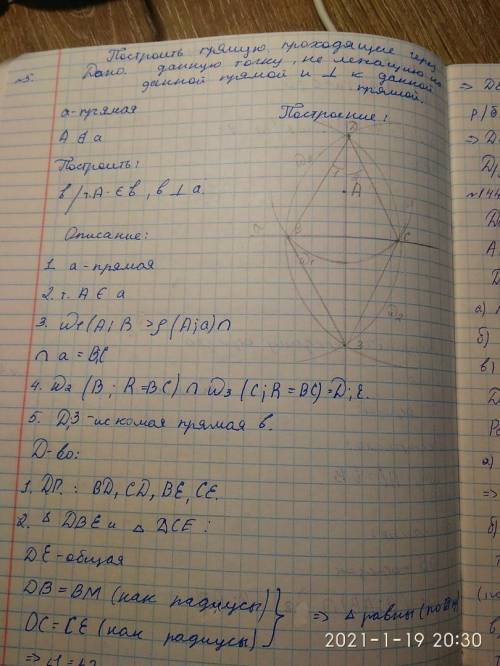 №5. Построить прямую, проходящие через
Дано: данную точку, не лежащую на
данной прямой и ⊥ к данной
прямой.
а-прямая
A ∉ a
Построение:
Построить:
в / т.A ∈ в, в ⊥ а
Описание:
1. а-прямая
2. т. A ∉ а
3. ω₁(A; R > ρ(A; a) ∩
∩ a = B; C
4. ω₂ (B; R=BC) ∩ ω₃ (C; R=BC) = D; E.
5. D; E - искомая прямая в.
Д-во:
1. ДП.: BD, CD, BE, CE.
2. △ DBE и △ DCE:
DE-общая
DB = BM (как радиусы)
DC = CE (как радиусы)
⇒ △ равны
⇒ ∠1 = ∠2
D
A
B
C
ω₁
ω₂
⇒
№144
а)
б)
в)
а)
⇒
б)
2021-1-19 20:30